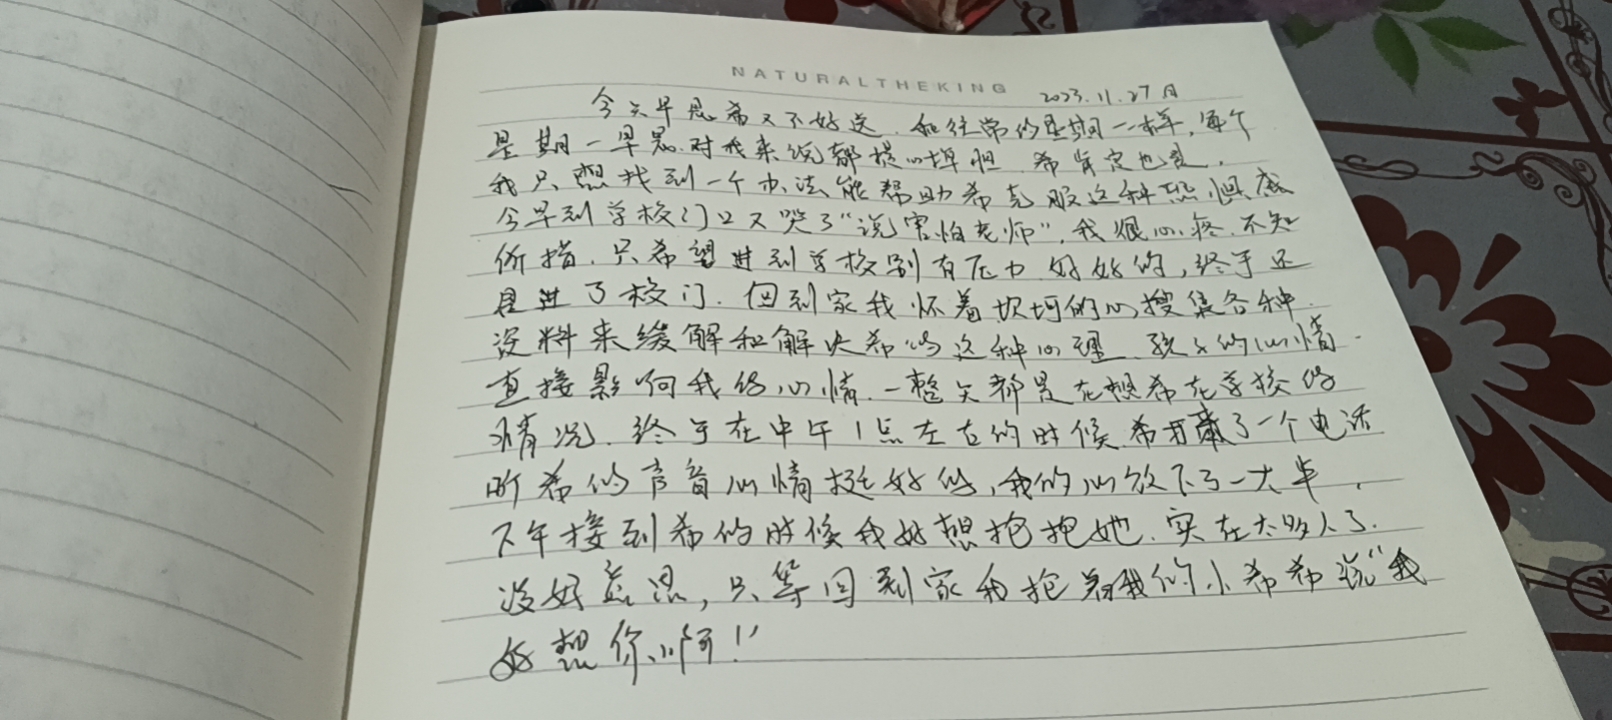 NATURALTHEKING
2023.11.27日
今天早晨希又不好送.和往常的星期一一样,每个
星期一早晨.对我来说都提心掉胆.希肯定也是.
我只想找到一个办法能帮助希克服这种恐惧感
今早到学校门口又哭了"说害怕老师".我很心疼.不知
所措.只希望进到学校别有压力 好好的,终于还
是进了校门.但到家我怀着坎坷的心搜集各种.
资料来缓解和解决希的这种心理.孩子的心情.
直接影响我的心情.一整天都是在想希在学校的
情况.终于在中午1点左右的时候希打来了一个电话
听希的声音心情挺好的,我的心放下了一大半.
下午接到希的时候我好想抱抱她.实在太多人了.
没好意思,只等回到家我抱着我的小希希说"我
好想你啊!"